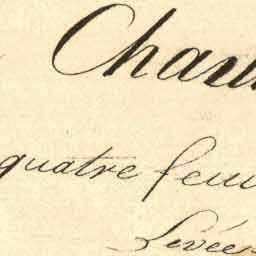 Chau
quatre feui
Levée